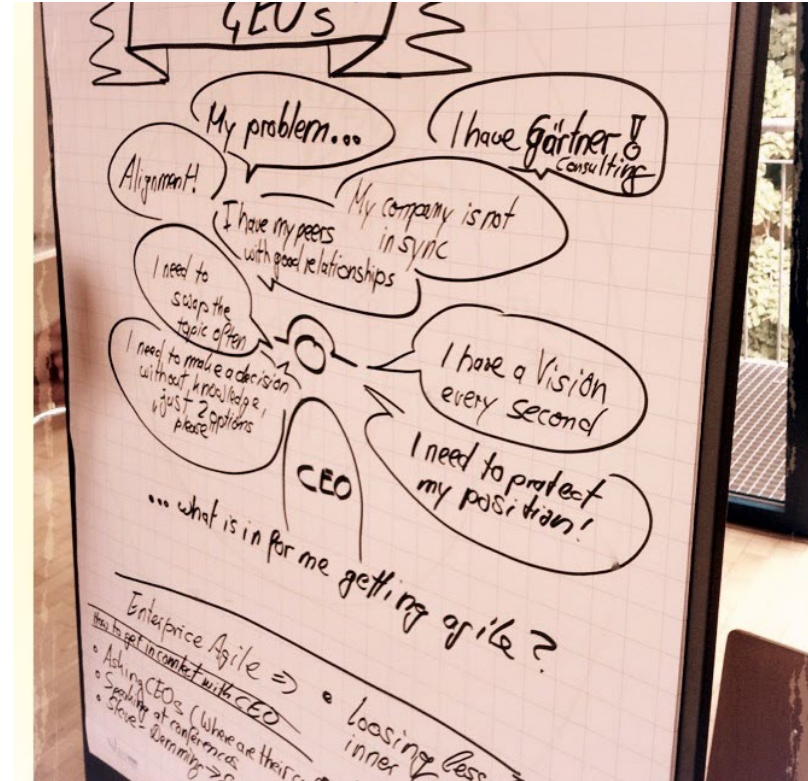 CEOs
My problem...
I have Gärtner!
Consulting
Alignment!
My company is not
in sync
I have my peers
with good relationships
I need to
swap the
topic often
I need to make a decision
without knowledge,
just 2 options
please
I have a Vision
every second
I need to protect
my position!
CEO
... what is in for me getting agile?
Enterprice Agile =>
How to get in contact with CEO
• Asking CEOs (Where are their
• Speaking at conferences
• Steve - Demming ->
• loosing less
inner